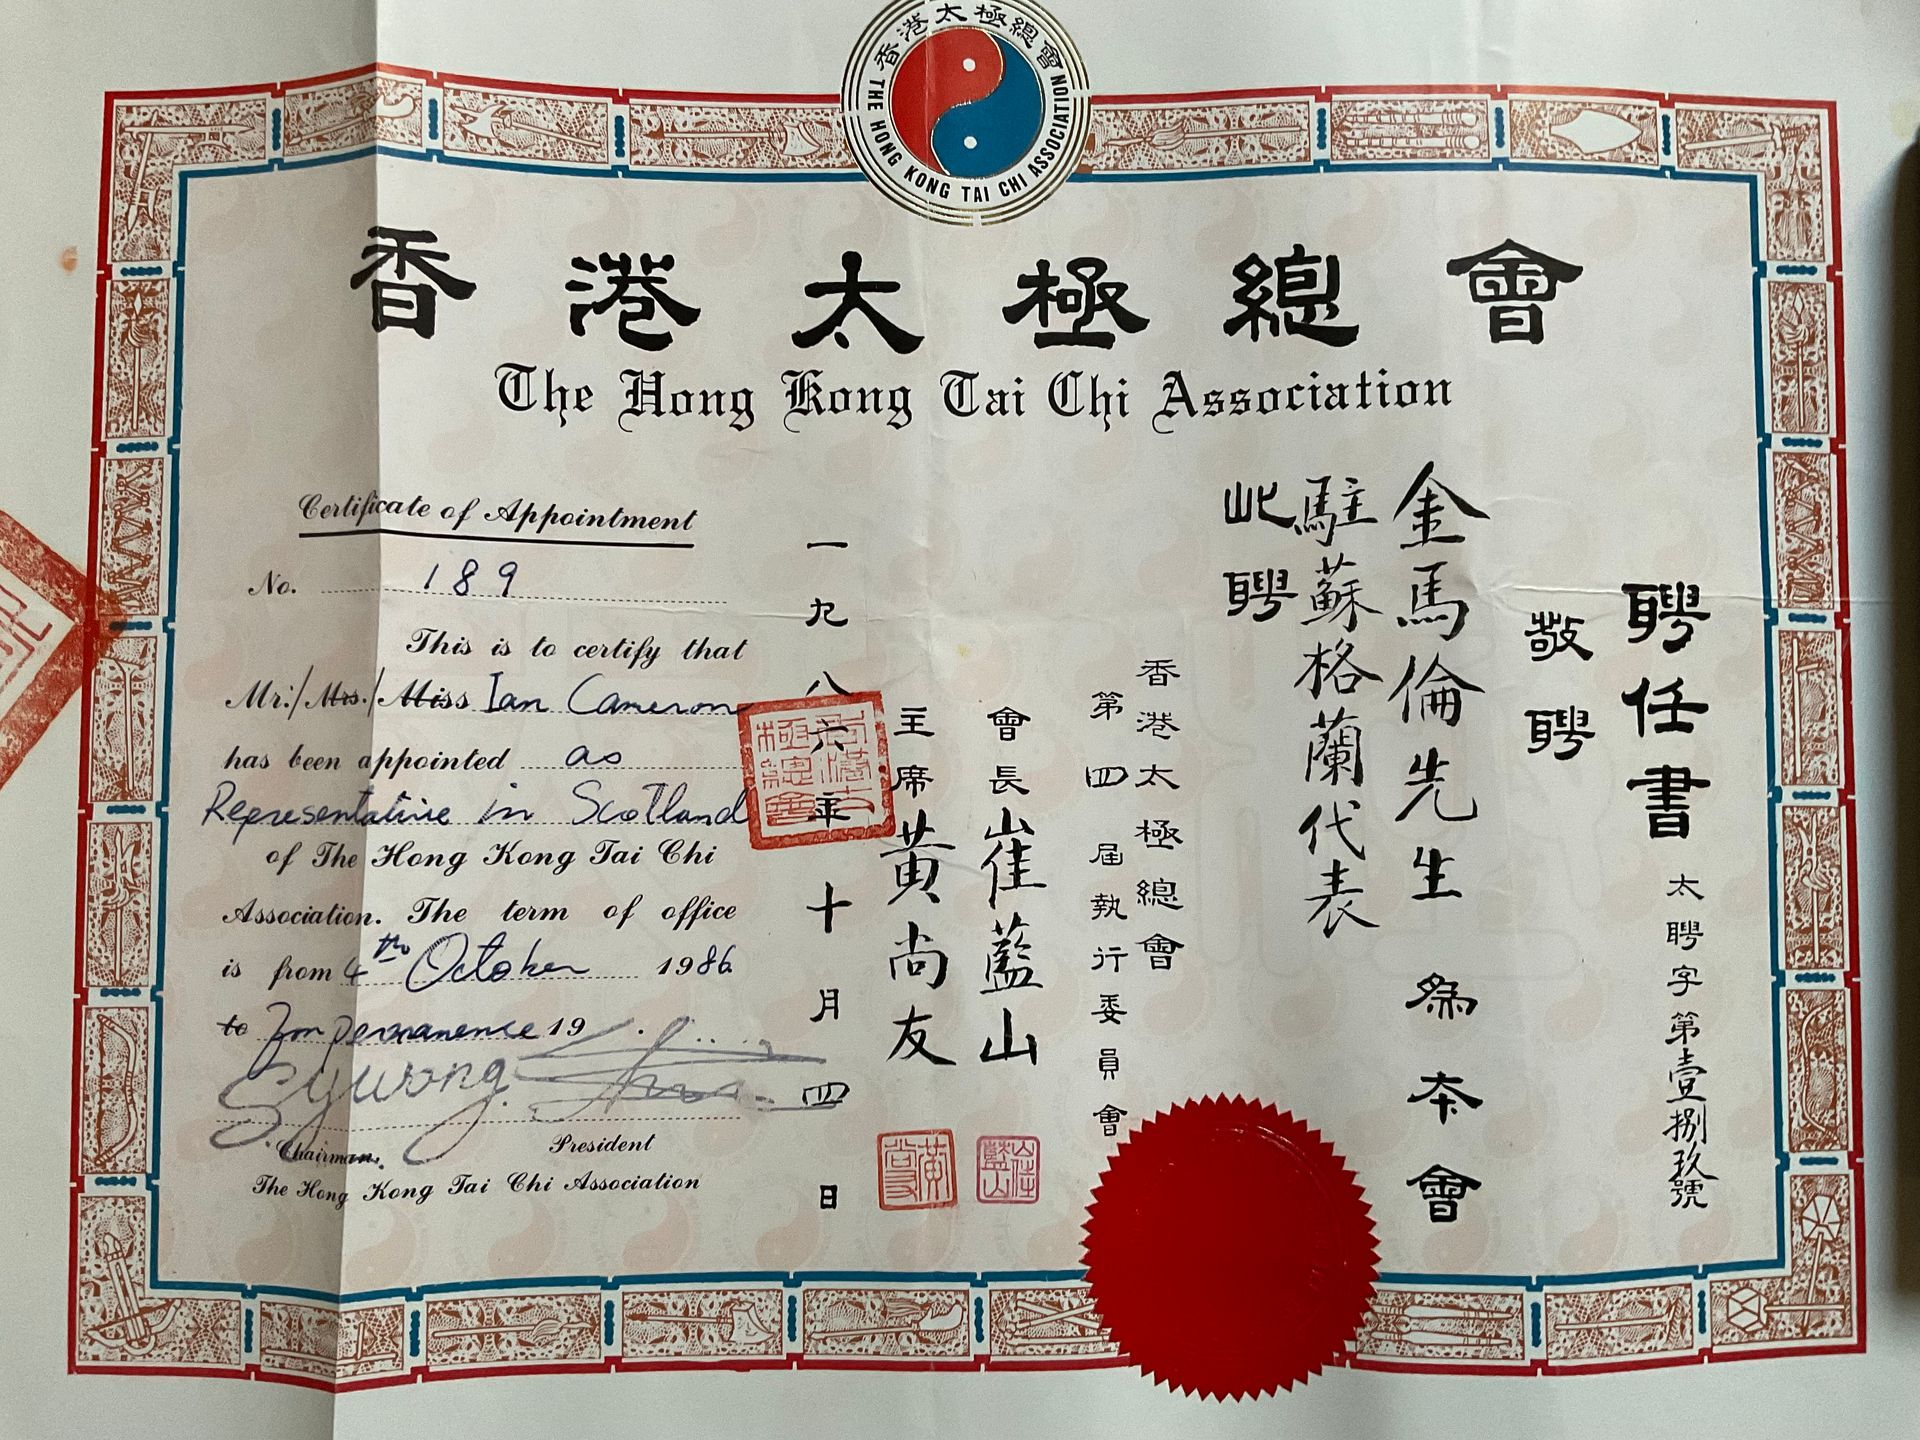 香港太極總會
THE HONG KONG TAI CHI ASSOCIATION
香港太極總會
The Hong Kong Tai Chi Association
聘任書
太聘字第壹捌玖號
敬聘
金馬倫先生 為本會
駐蘇格蘭代表
此聘
香港太極總會
第四屆執行委員會
會長崔藍山
崔藍山
主席黃尚友
黃尚友
一九八六年十月四日
香港太極總會
Certificate of Appointment
No. 189
This is to certify that
Mr./Mrs./Miss Ian Cameron
has been appointed as
Representative in Scotland
of The Hong Kong Tai Chi
Association. The term of office
is from 4th October 1986
to In permanence 19 .
Sywong
Chairman. President
The Hong Kong Tai Chi Association